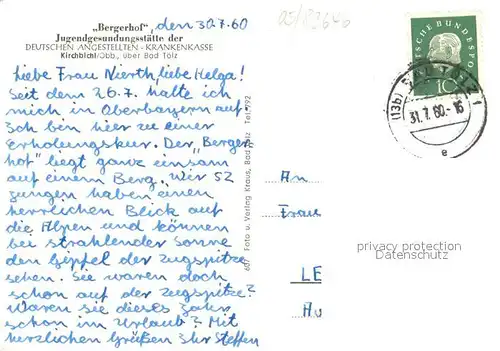 „Bergerhof", den 30.7.60
Jugendgesundungsstätte der
DEUTSCHEN ANGESTELLTEN - KRANKENKASSE
Kirchbichl/Obb., über Bad Tölz
Liebe Frau Nierth, liebe Helga!
Seit dem 26.7. halte ich
mich in Oberbayern auf
Ich bin hier zu einer
Erholungskur. Der „Berger
hof" liegt ganz einsam
auf einem Berg. Wir 52
Jungen haben einen
herrlichen Blick auf
die Alpen und können
bei strahlender Sonne
den Gipfel der Zugspitze
sehen. Sie waren doch
schon auf der Zugspitze?
Waren sie dieses Jahr
schon im Urlaub? Mit
herzlichen Grüßen Ihr Steffen
607 Foto u. Verlag Kraus, Bad Tölz Tel. 792
DEUTSCHE BUNDESPOST
10
(13b) BAD TÖLZ 1
31.7.60.-16
e
An
Frau
LE
Au
privacy protection
Datenschutz